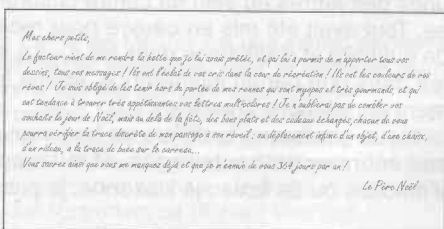 Mes chers petits,
Le facteur vient de me rendre la hotte que je lui avais prêtée, et qui lui a permis de m'apporter tous vos
dessins, tous vos messages ! Ils ont l'éclat de vos cris dans la cour de récréation ! Ils ont les couleurs de vos
rêves ! Je suis obligé de les tenir hors de portée de mes rennes qui sont myopes et très gourmands, et qui
ont tendance à trouver très appétissantes vos lettres multicolores ! Je n'oublierai pas de combler vos
souhaits le jour de Noël, mais au delà de la fête, des bons plats et des cadeaux échangés, chacun de vous
pourra vérifier la trace discrète de mon passage à son réveil : au déplacement infime d'un objet, d'une chaise,
d'un rideau, à la trace de buée sur le carreau...
Vous saurez ainsi que vous me manquez déjà et que je m'ennuie de vous 364 jours par an !
Le Père Noël